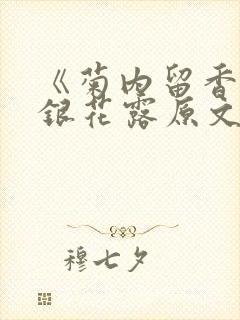 《菊内留香
銀花露原文
穆七夕